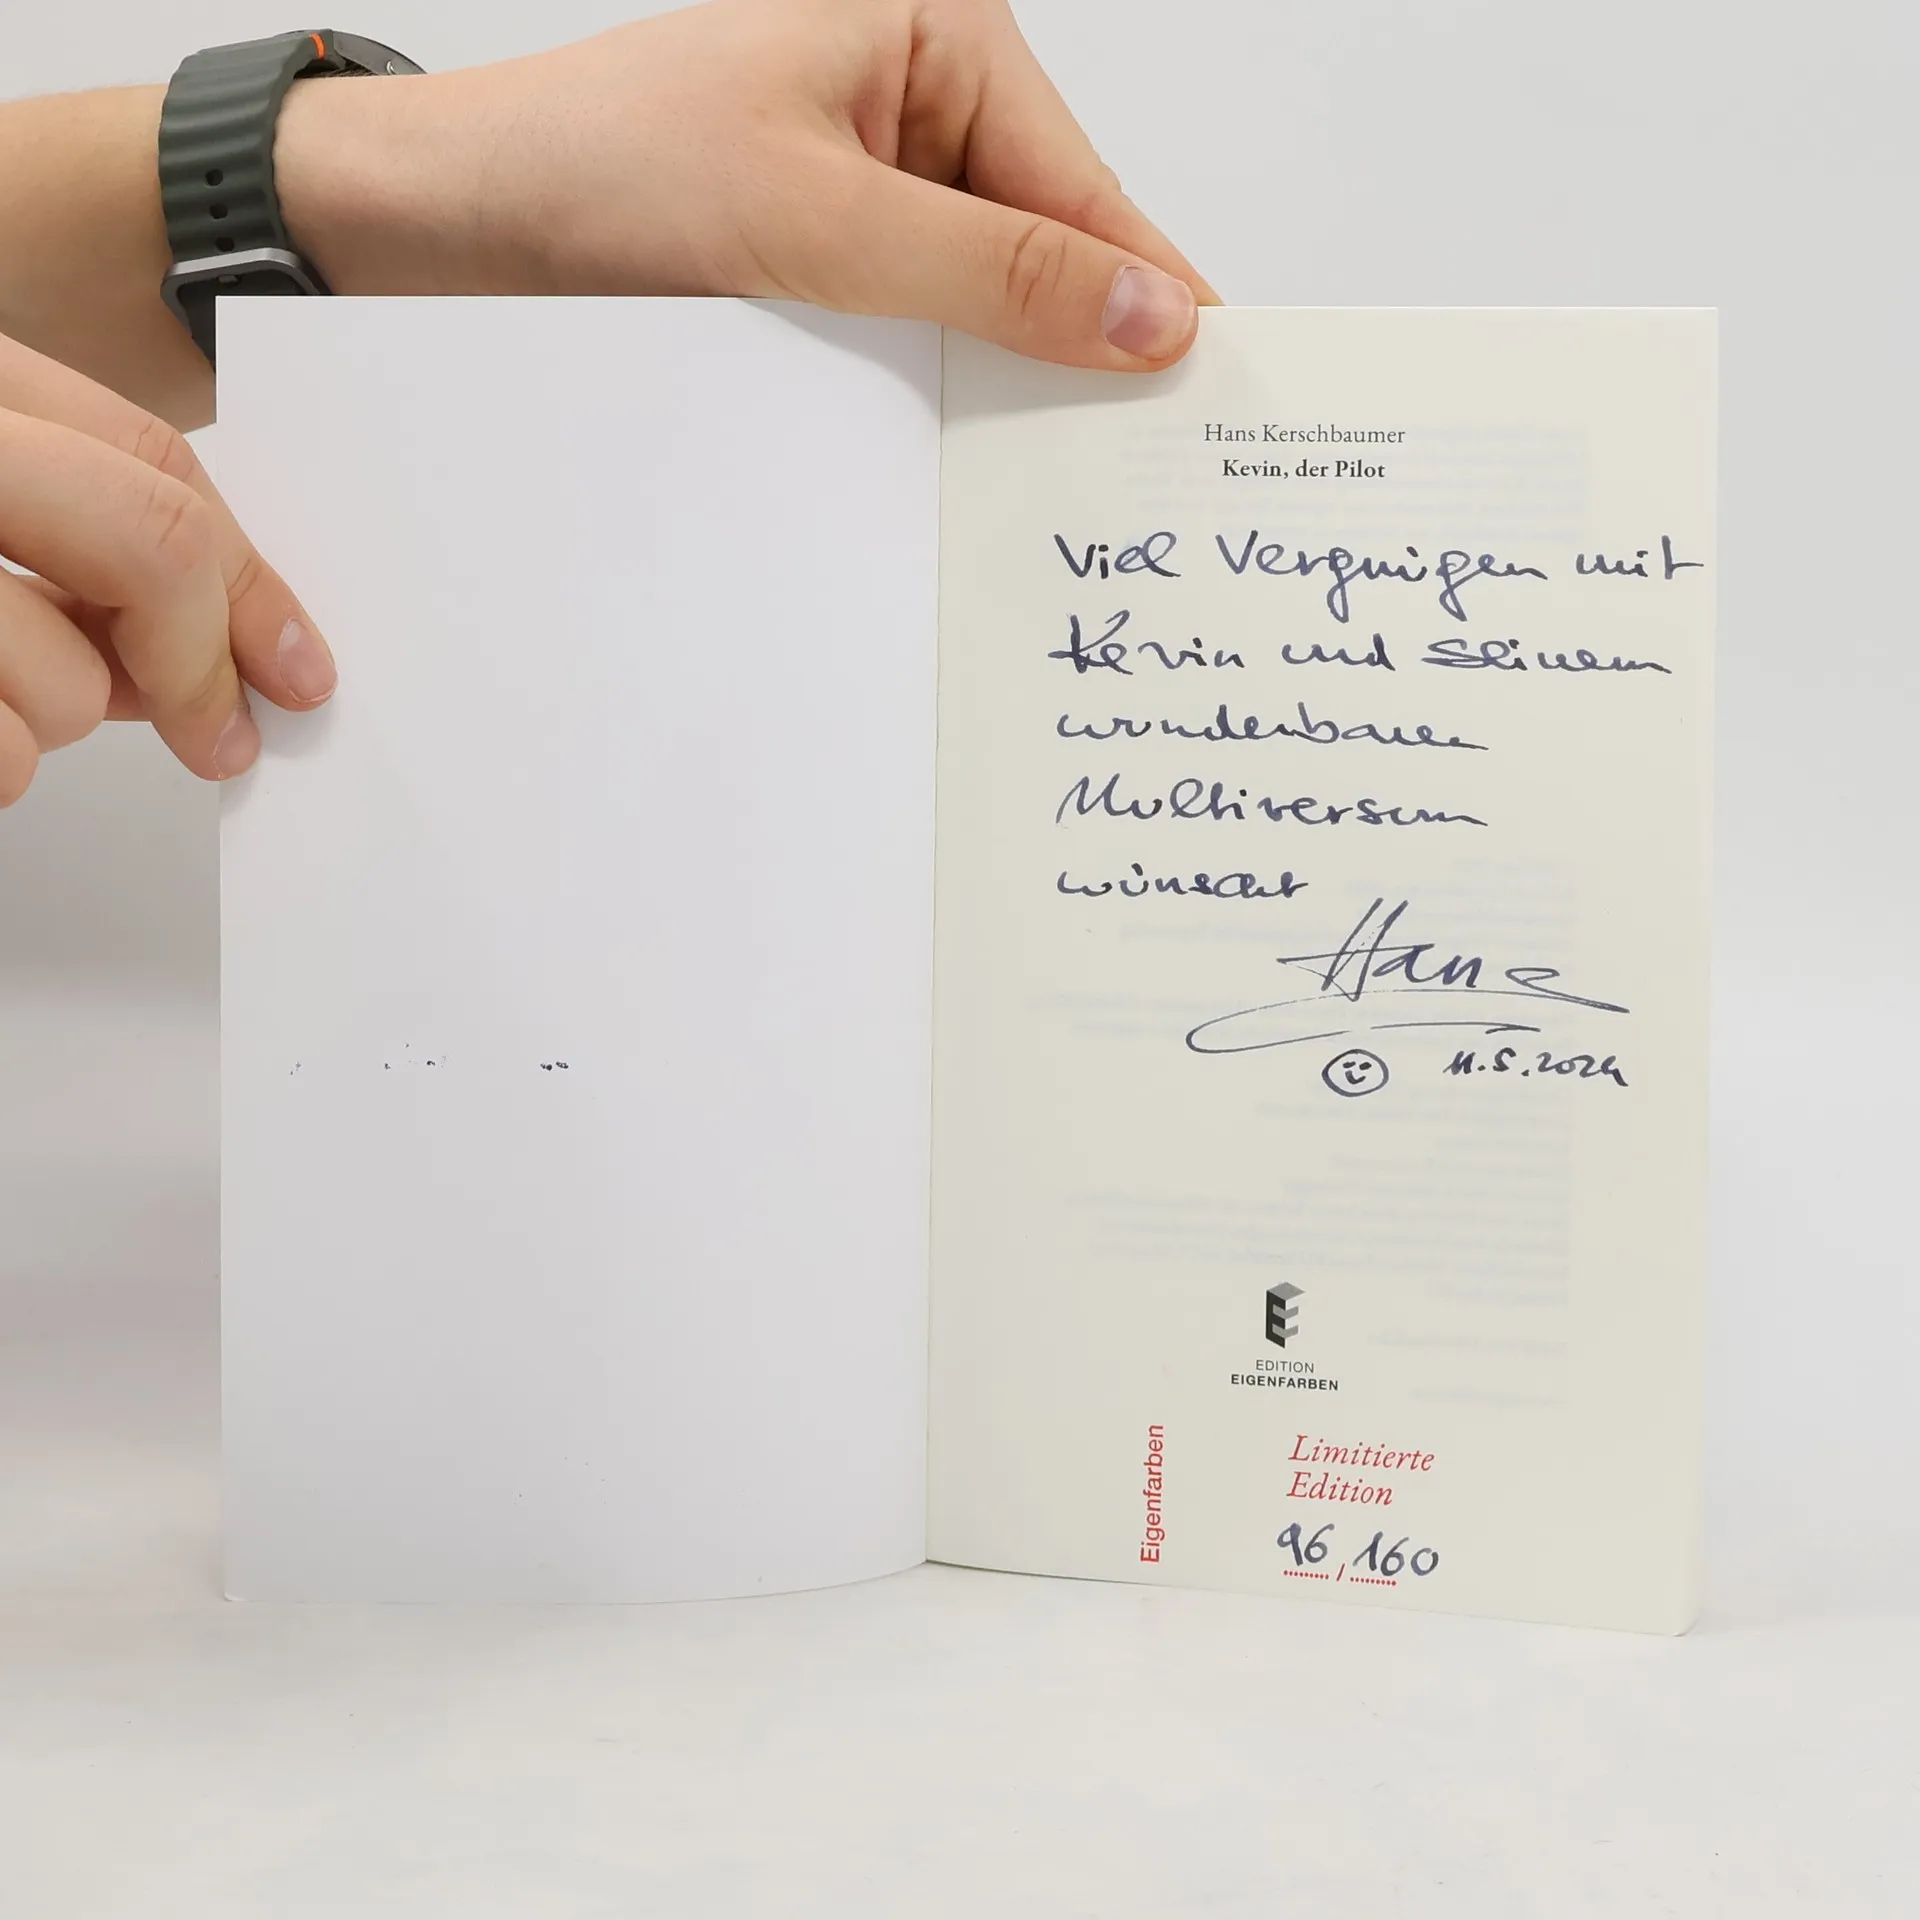 Hans Kerschbaumer
Kevin, der Pilot
Viel Vergnügen mit
Kevin und seinem
wunderbaren
Multiversum
wünscht
Hans
11.5.2024
EDITION
EIGENFARBEN
Eigenfarben
Limitierte
Edition
96 / 160